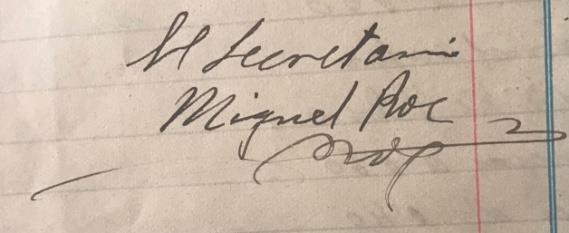 El Secretario
Miguel Roc